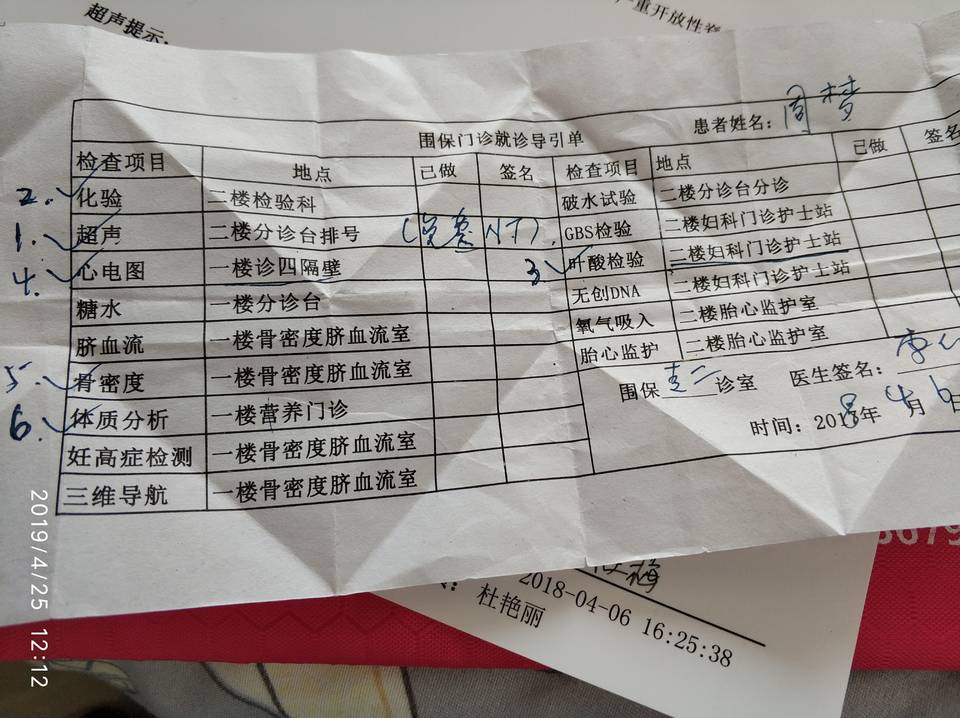 超声提示:
重开放性脊
围保门诊就诊导引单
患者姓名: 周梦
检查项目 地点 已做 签名 检查项目 地点 已做 签名
2. ✓ 化验 二楼检验科 破水试验 二楼分诊台分诊
1. ✓ 超声 二楼分诊台排号 NT). GBS检验 二楼妇科门诊护士站
4. ✓ 心电图 一楼诊四隔壁 3 ✓ 叶酸检验 二楼妇科门诊护士站
糖水 一楼分诊台 无创DNA 二楼妇科门诊护士站
脐血流 一楼骨密度脐血流室 氧气吸入 二楼胎心监护室
5. ✓ 骨密度 一楼骨密度脐血流室 胎心监护 二楼胎心监护室
6. ✓ 体质分析 一楼营养门诊 围保 诊室 医生签名: 李
妊高症检测 一楼骨密度脐血流室 时间: 2018年4月6日
三维导航 一楼骨密度脐血流室
8679
梅
2018-04-06 16:25:38
杜艳丽
2019/4/25 12:12